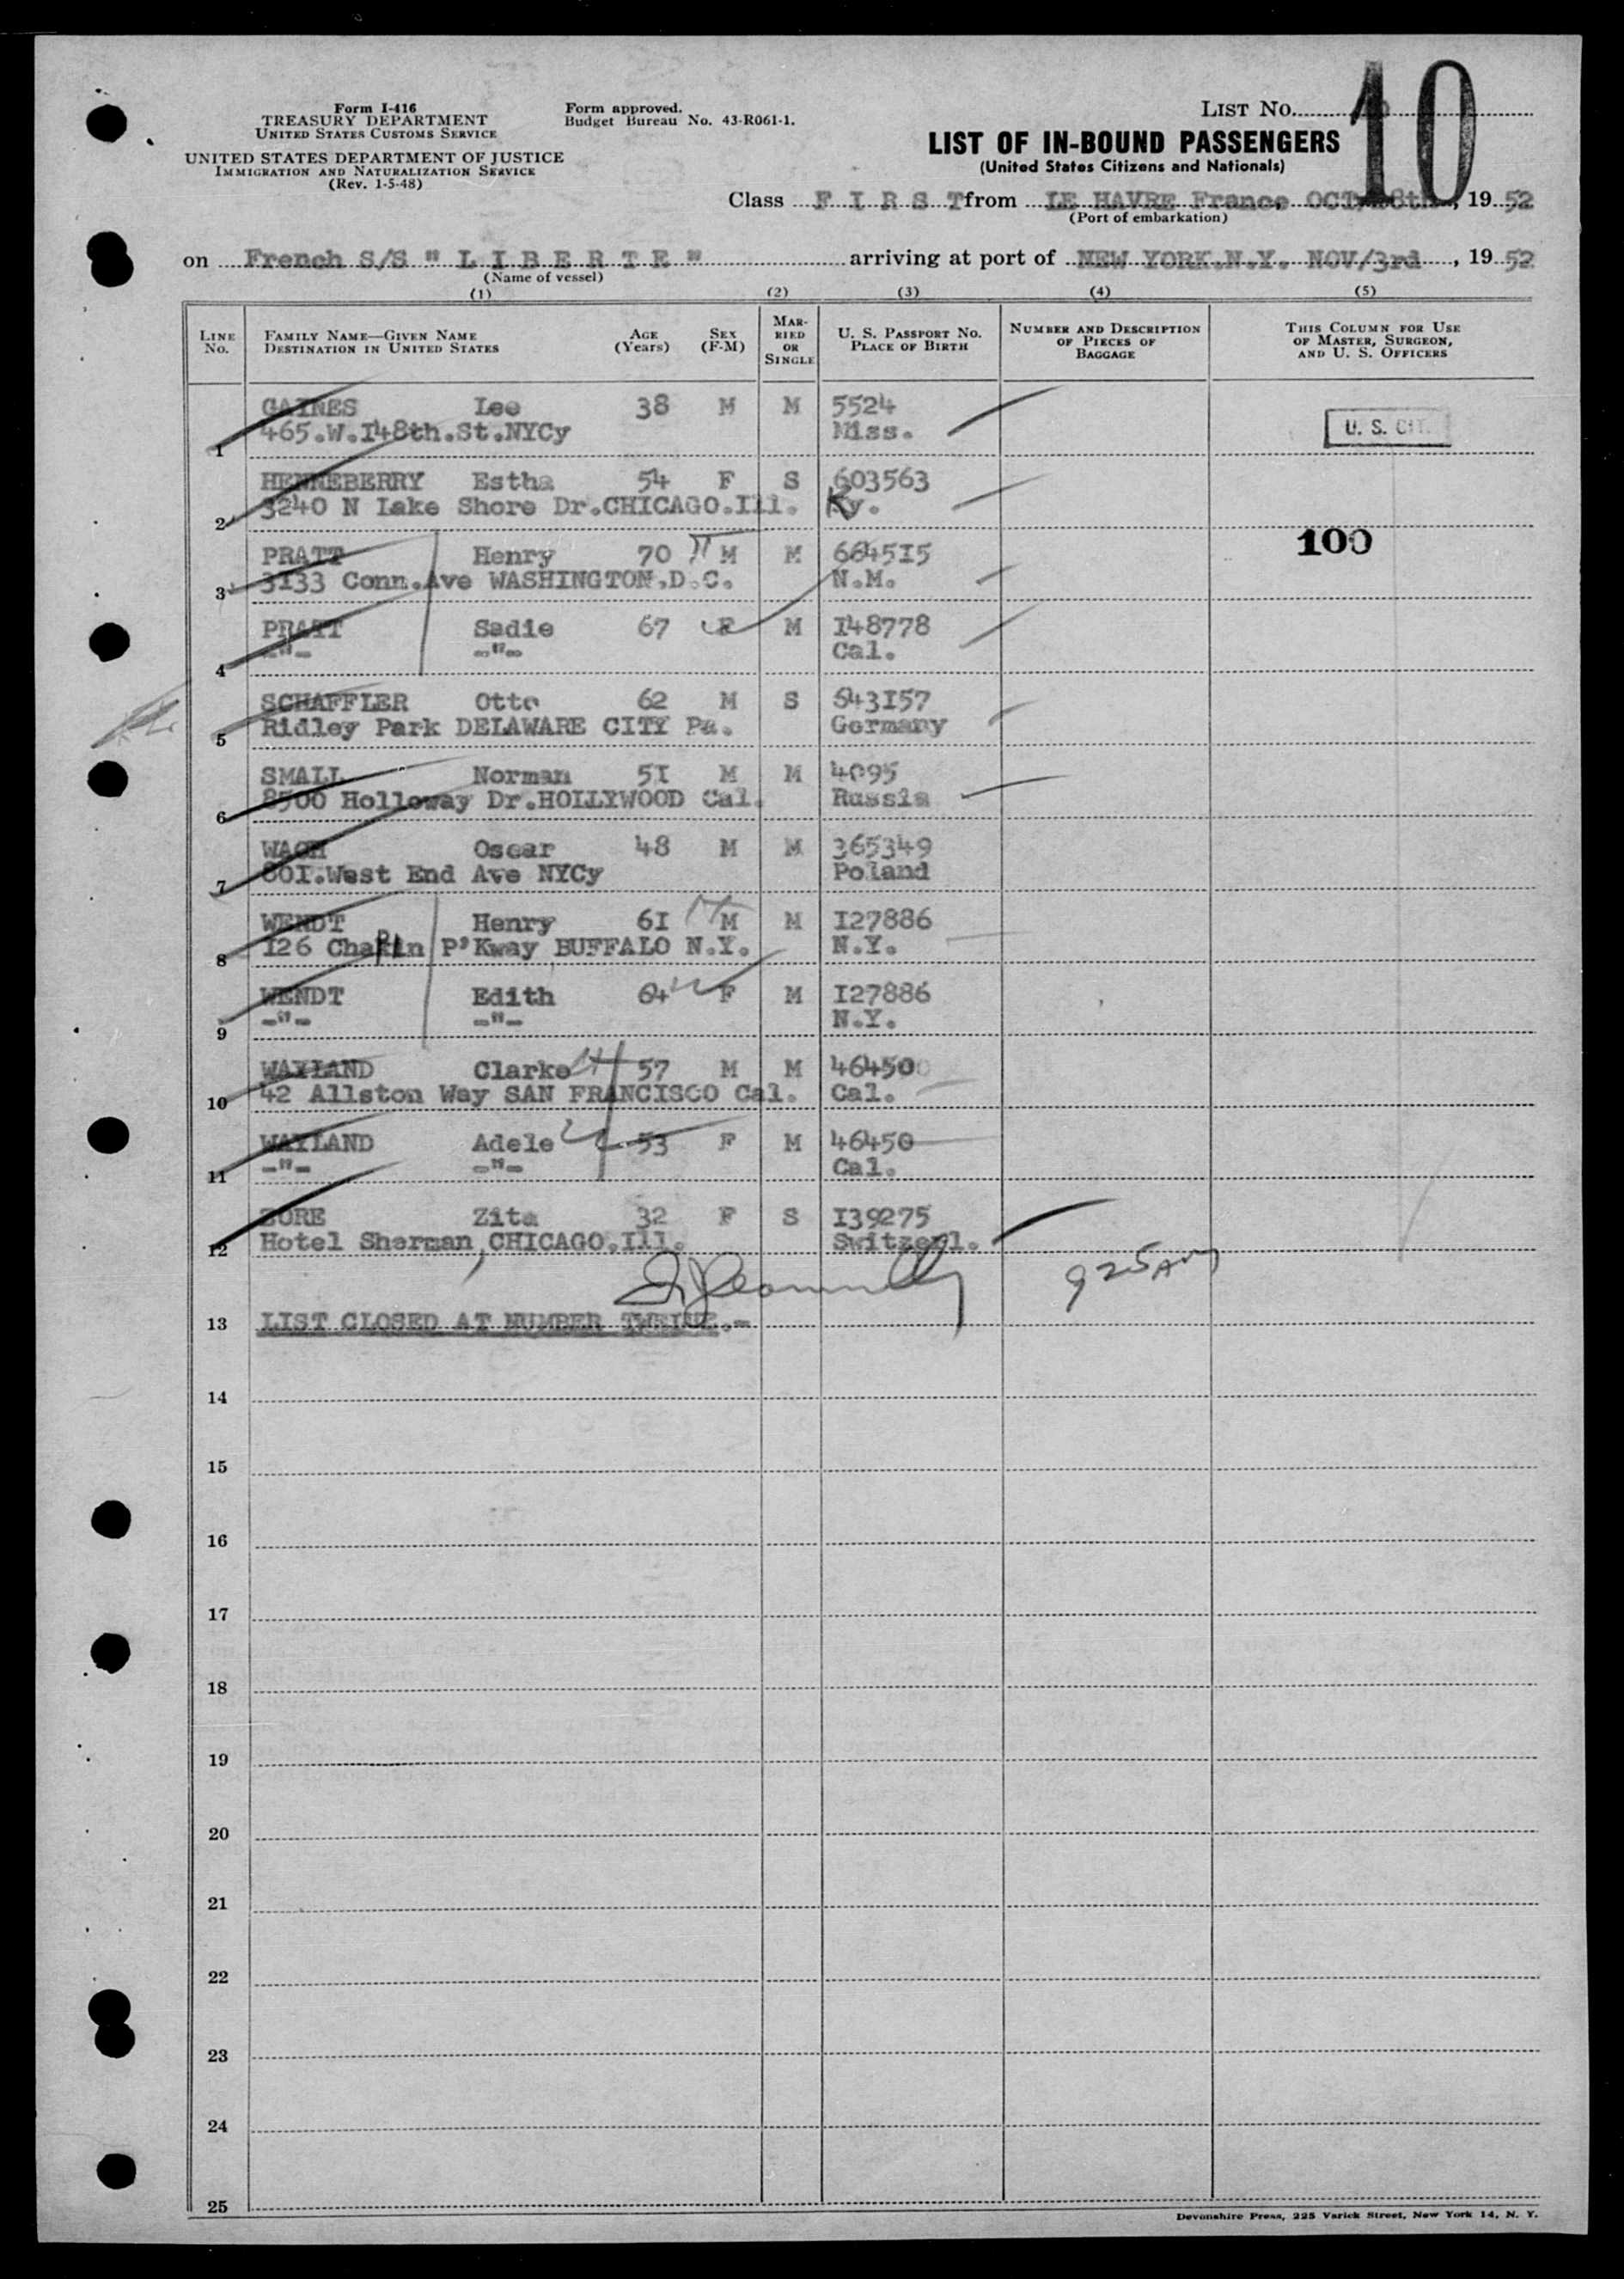 Form I-416
TREASURY DEPARTMENT
UNITED STATES CUSTOMS SERVICE
UNITED STATES DEPARTMENT OF JUSTICE
IMMIGRATION AND NATURALIZATION SERVICE
(Rev. 1-5-48)
Form approved.
Budget Bureau No. 43-R061-1.
LIST No. 10
LIST OF IN-BOUND PASSENGERS
(United States Citizens and Nationals)
Class F I R S T from LE HAVRE France, OCT/ 8th, 19 52
(Port of embarkation)
on French S/S " L I B E R T E " arriving at port of NEW YORK.N.Y. NOV/3rd, 19 52
(Name of vessel)
(1) (2) (3) (4) (5)
LINE No. FAMILY NAME—GIVEN NAME DESTINATION IN UNITED STATES AGE (Years) SEX (F-M) MARRIED OR SINGLE U. S. PASSPORT No. PLACE OF BIRTH NUMBER AND DESCRIPTION OF PIECES OF BAGGAGE THIS COLUMN FOR USE OF MASTER, SURGEON, AND U. S. OFFICERS
GAINES Lee 38 M M 5524
1 465.W.I48th.St.NYCy Miss. U. S. CIT.
HENNEBERRY Estha 54 F S 603563
2 3240 N Lake Shore Dr.CHICAGO.Ill. Ky.
100
PRATT Henry 70 M M 664515
3 3133 Conn.Ave WASHINGTON.D.C. N.M.
PRATT Sadie 67 F M I48778
4 -"- -"- Cal.
SCHAFFLER Otto 62 M S 643I57
5 Ridley Park DELAWARE CITY Pa. Germany
SMALL Norman 5I M M 4095
6 8500 Holloway Dr.HOLLYWOOD Cal. Russia
WACH Oscar 48 M M 365349
7 80I.West End Ave NYCy Poland
WENDT Henry 6I M M I27886
8 I26 Chapin P'Kway BUFFALO N.Y. N.Y.
WENDT Edith 64 F M I27886
9 -"- -"- N.Y.
WAYLAND Clarke 57 M M 464500
10 42 Allston Way SAN FRANCISCO Cal. Cal.
WAYLAND Adele 53 F M 46450
11 -"- -"- Cal.
ZORE Zita 32 F S I39275
12 Hotel Sherman, CHICAGO.Ill. Switzerl.
925 AM
13 LIST CLOSED AT NUMBER TWELVE.-
14
15
16
17
18
19
20
21
22
23
24
25
Devonshire Press, 225 Varick Street, New York 14, N. Y.